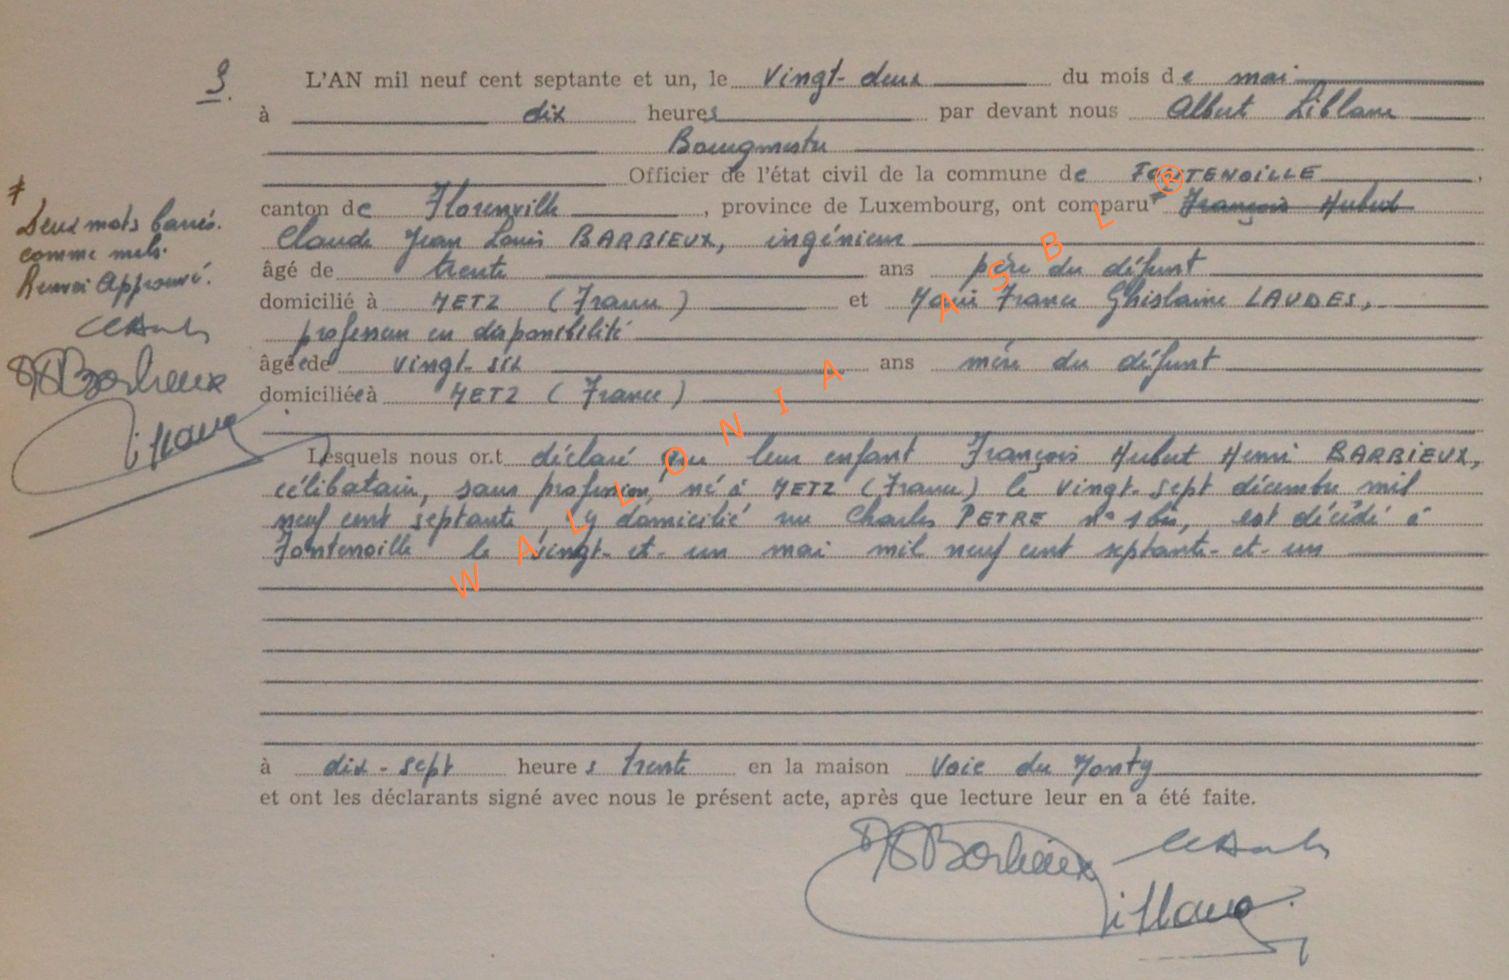 3.
L'AN mil neuf cent septante et un, le vingt-deux du mois de mai
à dix heures par devant nous Albert Liblanc
Bourgmestre
Officier de l'état civil de la commune de FONTENOILLE,
canton de Florenville, province de Luxembourg, ont comparu ≠ François Hubert
Claude Jean Louis BARBIEUX, ingénieur
âgé de trente ans père du défunt
domicilié à METZ (France) et Marie France Ghislaine LAUDES,
professeur en disponibilité
âgée de vingt-six ans mère du défunt
domiciliée à METZ (France)
Lesquels nous ont déclaré que leur enfant François Hubert Henri BARBIEUX,
célibataire, sans profession, né à METZ (France) le vingt-sept décembre mil
neuf cent septante, y domicilié rue Charles PETRE n° 1 bis, est décédé à
Fontenoille le vingt-et-un mai mil neuf cent septante-et-un
à dix-sept heures trente en la maison Voie du Monty
et ont les déclarants signé avec nous le présent acte, après que lecture leur en a été faite.
Barbieux
≠
Deux mots barrés.
comme nuls.
Renvoi Approuvé.
Barbieux
WALLONIA ASBL ®